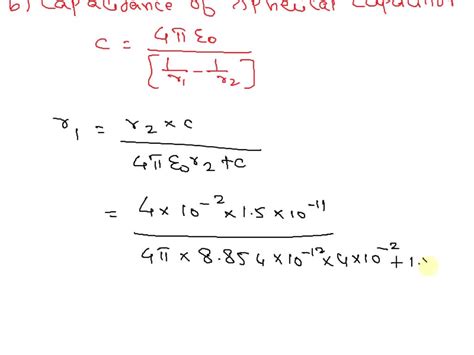 b) Capacitance of spherical capacitor
C = 4π ε0 / [1/r1 - 1/r2]
r1 = r2 × C / 4π ε0 r2 + C
= 4 × 10^-2 × 1.5 × 10^-11 / 4π × 8.854 × 10^-12 × 4 × 10^-2 + 1.